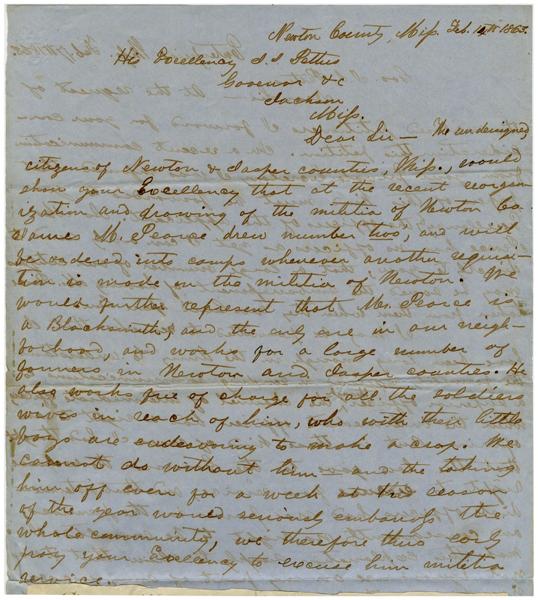 Newton County, Miss. Feb. 1863.
His Excellency J. J. Pettus
Governor &c
Jackson
Miss.
Dear Sir — The undersigned
citizens of Newton & Jasper counties, Miss., would
show your Excellency that at the recent reorgan-
ization and drawing of the militia of Newton Co.
James M. Pearce drew number two, and will
be ordered into camps whenever another requisi-
tion is made on the militia of Newton. We
would further represent that Mr. Pearce is
a Blacksmith, and the only one in our neigh-
borhood, and works for a large number of
farmers in Newton and Jasper counties. He
also works free of charge for all the soldiers
wives in reach of him, who with their little
boys are endeavoring to make a crop. We
cannot do without him — and the taking
him off even for a week at this season
of the year would seriously embarrass the
whole community, we therefore thus early
pray your Excellency to excuse him militia
service.